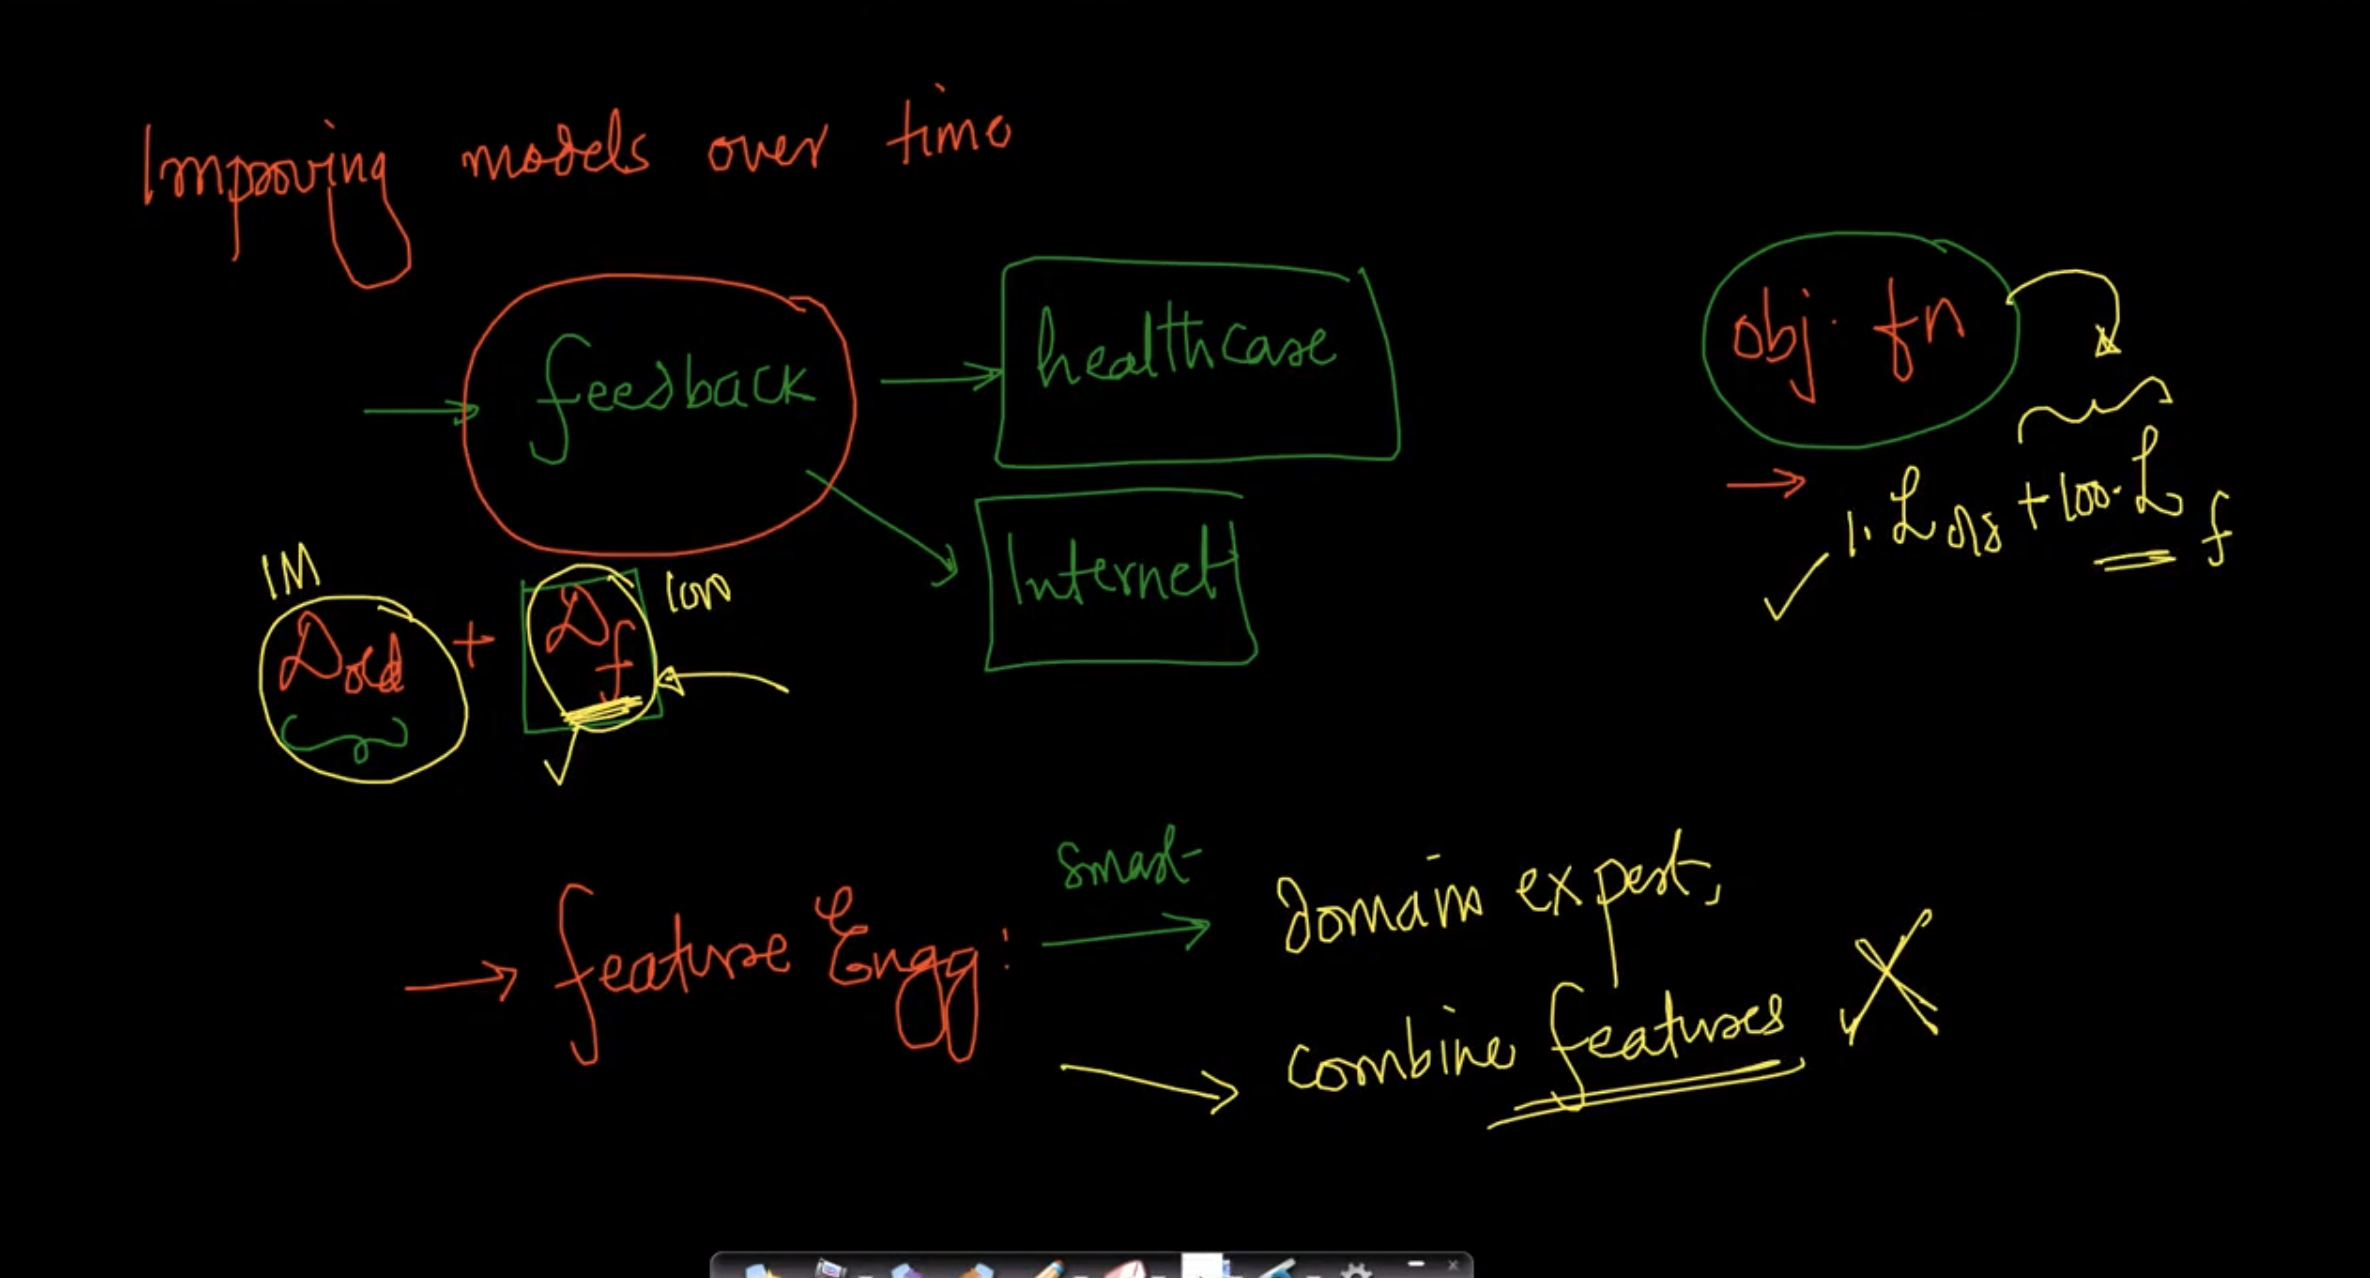 Improving models over time
feedback
healthcare
Internet
obj. fn
1. L old + 100. L f
1M
D old + D f
1000
feature Engg:
smart
domain expert,
combine features